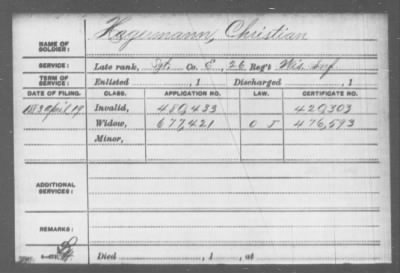 NAME OF SOLDIER: Hagemann, Christian
SERVICE: Late rank, Sgt. Co. E, 26 Reg't Wis. Inf.
TERM OF SERVICE: Enlisted , 1 Discharged , 1
DATE OF FILING. CLASS. APPLICATION NO. LAW. CERTIFICATE NO.
Invalid, 480,433 420,303
Widow, 677,421 O J 476,593
Minor,
ADDITIONAL SERVICES:
REMARKS:
Died , 1 , at